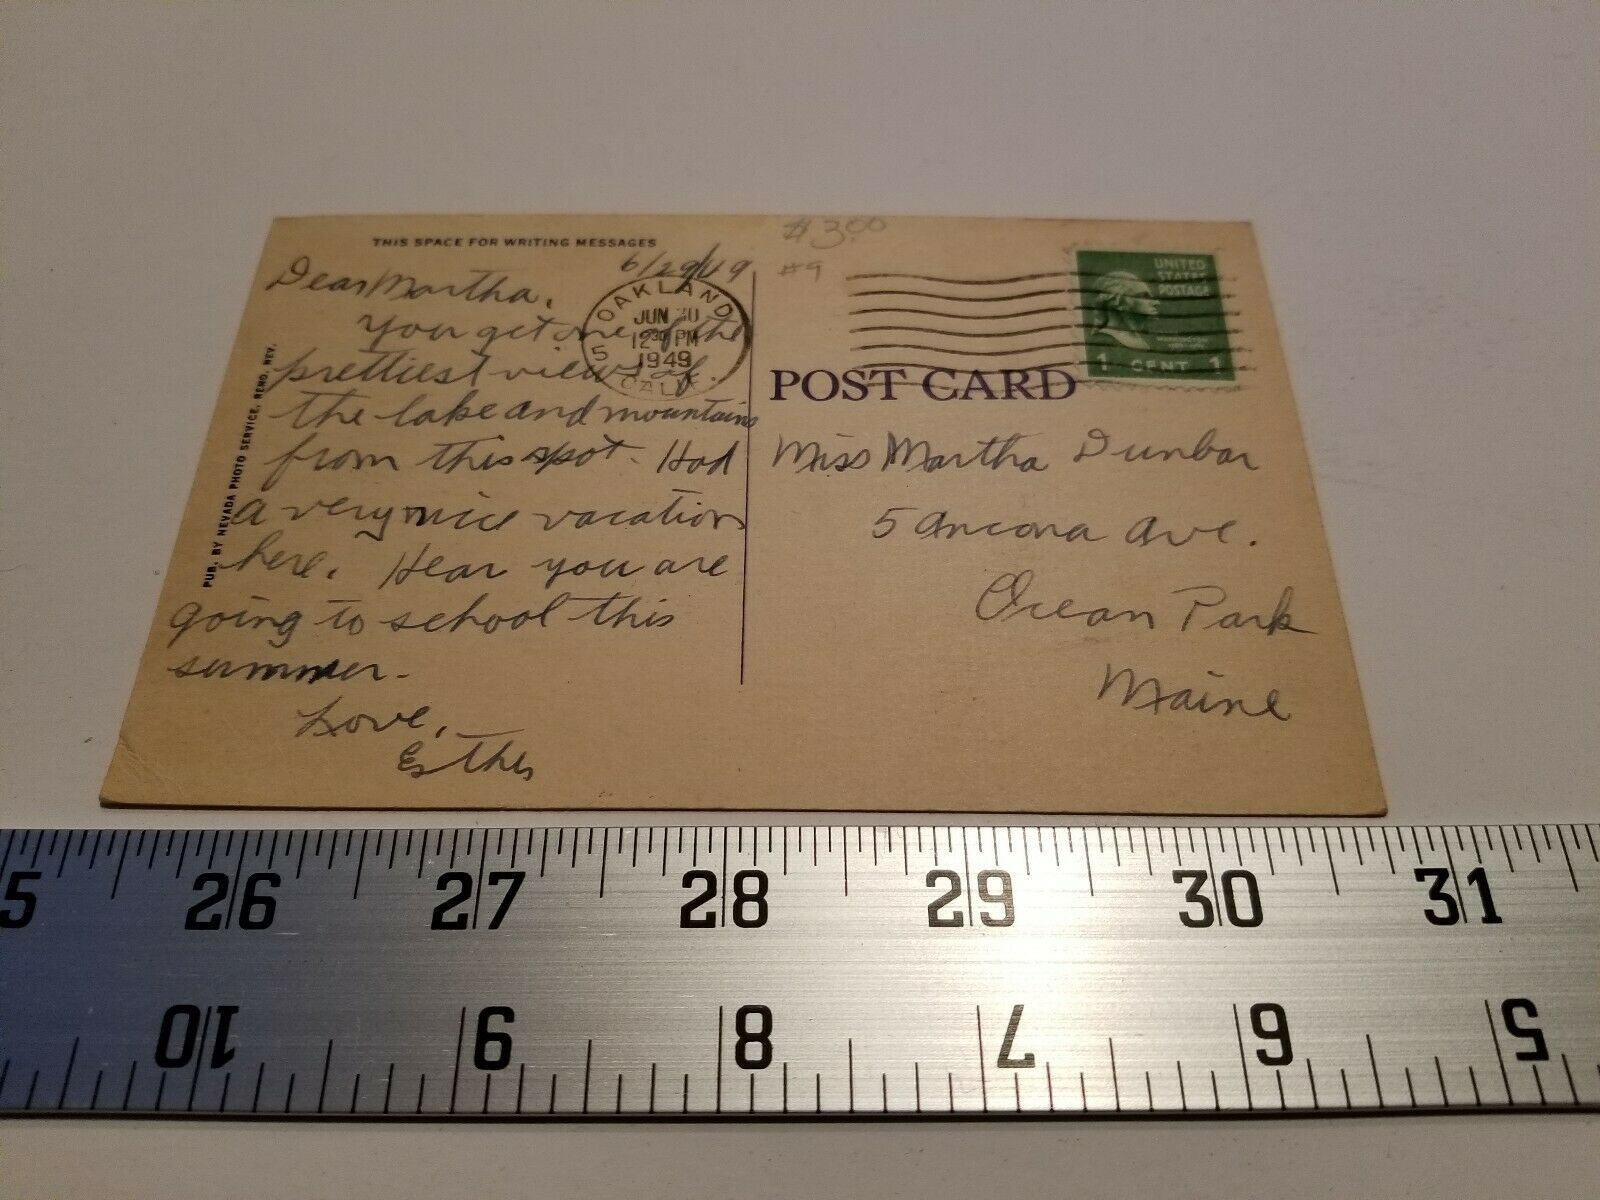 THIS SPACE FOR WRITING MESSAGES
6/29/49
Dear Martha,
You get one of the
prettiest views of
the lake and mountains
from this spot. Had
a very nice vacation
here. Hear you are
going to school this
summer.
Love,
Esther
PUB. BY NEVADA PHOTO SERVICE, RENO, NEV.
OAKLAND
JUN 30
12 30 PM
1949
5 CALIF.
$3.00
#9
UNITED
STATES
POSTAGE
WASHINGTON
1 CENT 1
POST CARD
Miss Martha Dunbar
5 Ancona Ave.
Ocean Park
Maine
5 26 27 28 29 30 31
10 9 8 7 6 5